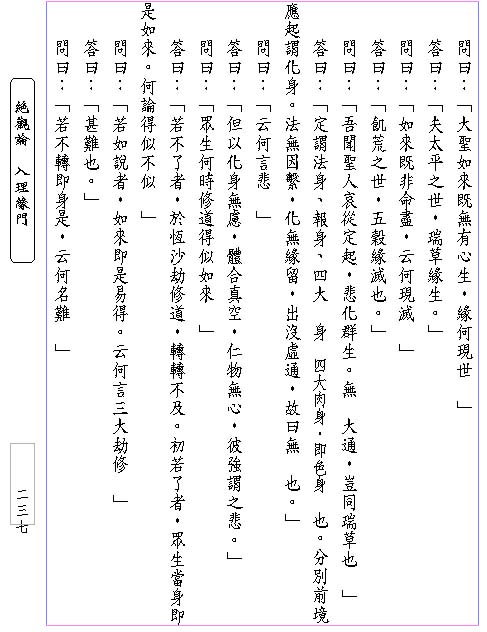 問曰：「大聖如來既無有心生，緣何現世　」
答曰：「夫太平之世，瑞草緣生。」
問曰：「如來既非命盡，云何現滅　」
答曰：「飢荒之世，五穀緣滅也。」
問曰：「吾聞聖人哀從定起，悲化群生。無　大通，豈同瑞草也　」
答曰：「定謂法身、報身、四大　身　四大肉身，即色身　也。分別前境
應起謂化身。法無因繫，化無緣留，出沒虛通，故曰無　也。」
問曰：「云何言悲　」
答曰：「但以化身無慮，體合真空，仁物無心，彼強謂之悲。」
問曰：「眾生何時修道得似如來　」
答曰：「若不了者，於恆沙劫修道，轉轉不及。初若了者，眾生當身即
是如來。何論得似不似　」
問曰：「若如說者，如來即是易得。云何言三大劫修　」
答曰：「甚難也。」
問曰：「若不轉即身是，云何名難　」
絕觀論　入理緣門
二三七